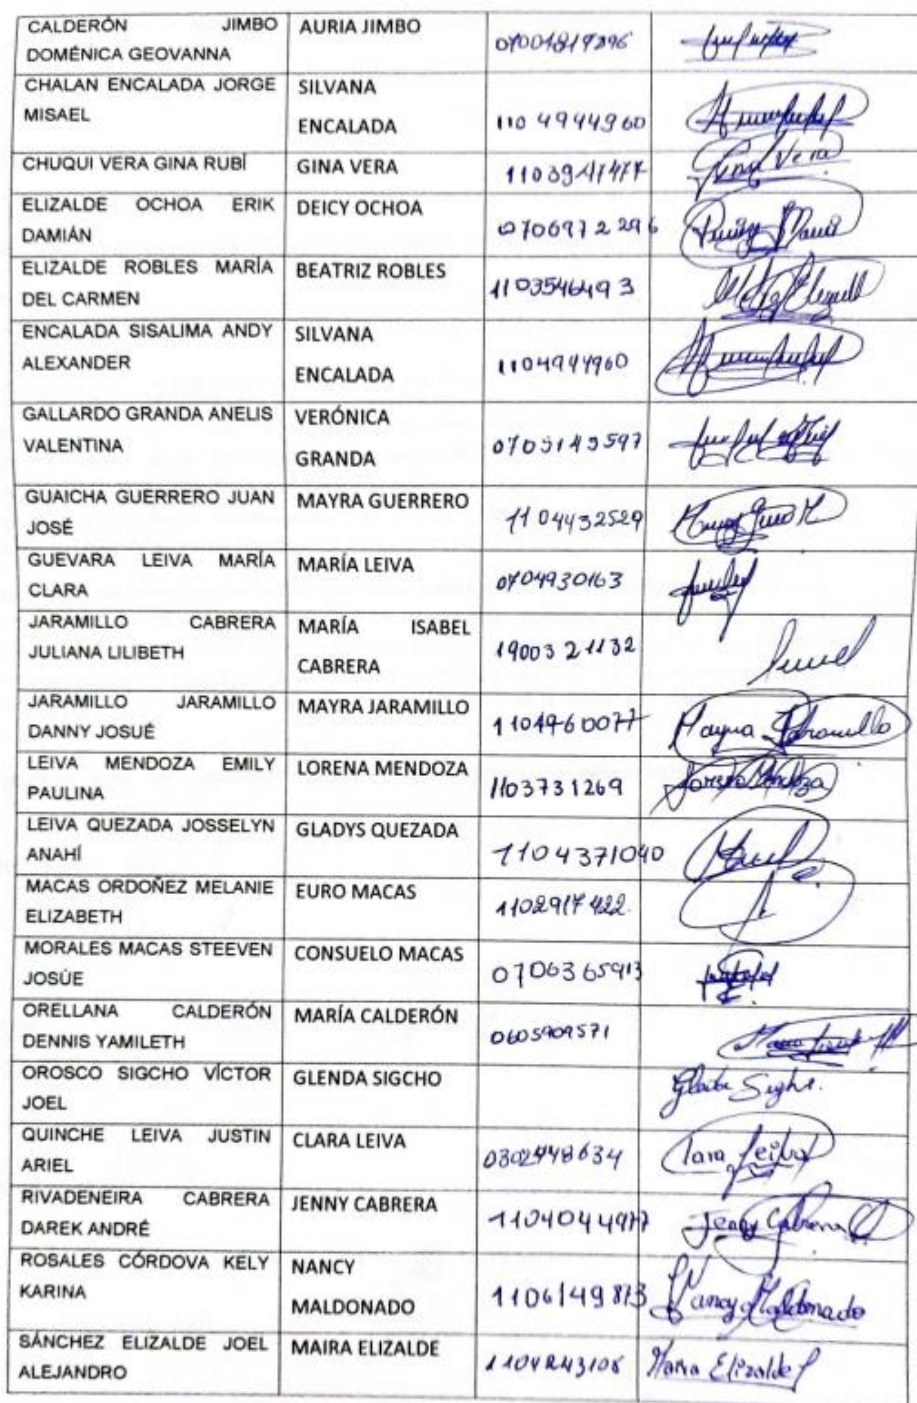 CALDERÓN JIMBO DOMÉNICA GEOVANNA AURIA JIMBO
CHALAN ENCALADA JORGE MISAEL SILVANA ENCALADA 1104944960
CHUQUI VERA GINA RUBÍ GINA VERA Gina Vera
ELIZALDE OCHOA ERIK DAMIÁN DEICY OCHOA 0706972296
ELIZALDE ROBLES MARÍA DEL CARMEN BEATRIZ ROBLES 1103546493
ENCALADA SISALIMA ANDY ALEXANDER SILVANA ENCALADA 1104944960
GALLARDO GRANDA ANELIS VALENTINA VERÓNICA GRANDA 0703143597
GUAICHA GUERRERO JUAN JOSÉ MAYRA GUERRERO 1104432529
GUEVARA LEIVA MARÍA CLARA MARÍA LEIVA 0704930163
JARAMILLO CABRERA JULIANA LILIBETH MARÍA ISABEL CABRERA 1900321132
JARAMILLO JARAMILLO DANNY JOSUÉ MAYRA JARAMILLO 1104960077 Mayra Jaramillo
LEIVA MENDOZA EMILY PAULINA LORENA MENDOZA 1103731269 Lorena Mendoza
LEIVA QUEZADA JOSSELYN ANAHÍ GLADYS QUEZADA 1104371040
MACAS ORDOÑEZ MELANIE ELIZABETH EURO MACAS 1102917422
MORALES MACAS STEEVEN JOSÚE CONSUELO MACAS 0706365913
ORELLANA CALDERÓN DENNIS YAMILETH MARÍA CALDERÓN 0605909571
OROSCO SIGCHO VÍCTOR JOEL GLENDA SIGCHO
QUINCHE LEIVA JUSTIN ARIEL CLARA LEIVA 0302448634
RIVADENEIRA CABRERA DAREK ANDRÉ JENNY CABRERA 1104044977 Jenny Cabrera
ROSALES CÓRDOVA KELY KARINA NANCY MALDONADO 1106149873 Nancy Maldonado
SÁNCHEZ ELIZALDE JOEL ALEJANDRO MAIRA ELIZALDE Maira Elizalde